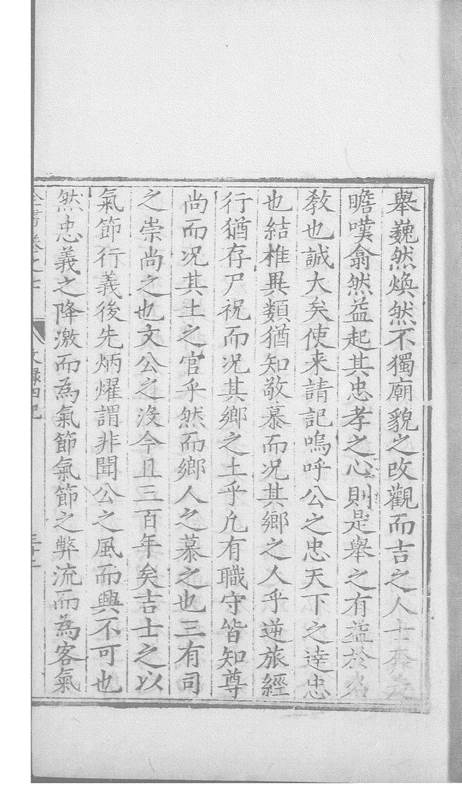 舉巍然煥然不獨廟貌之改觀而吉之人士奔走
瞻嘆翕然益起其忠孝之心則是舉之有益於名
教也誠大矣使来請記嗚呼公之忠天下之達忠
也結椎異類猶知敬慕而况其鄉之人乎逆旅經
行猶存尸祝而况其鄉之士乎凢有職守皆知尊
尚而况其土之官乎然而鄉人之慕之也三有司
之崇尚之也文公之沒今且三百年矣吉士之以
氣節行義後先炳燿謂非聞公之風而興不可也
然忠義之降激而為氣節氣節之弊流而為客氣
文録四